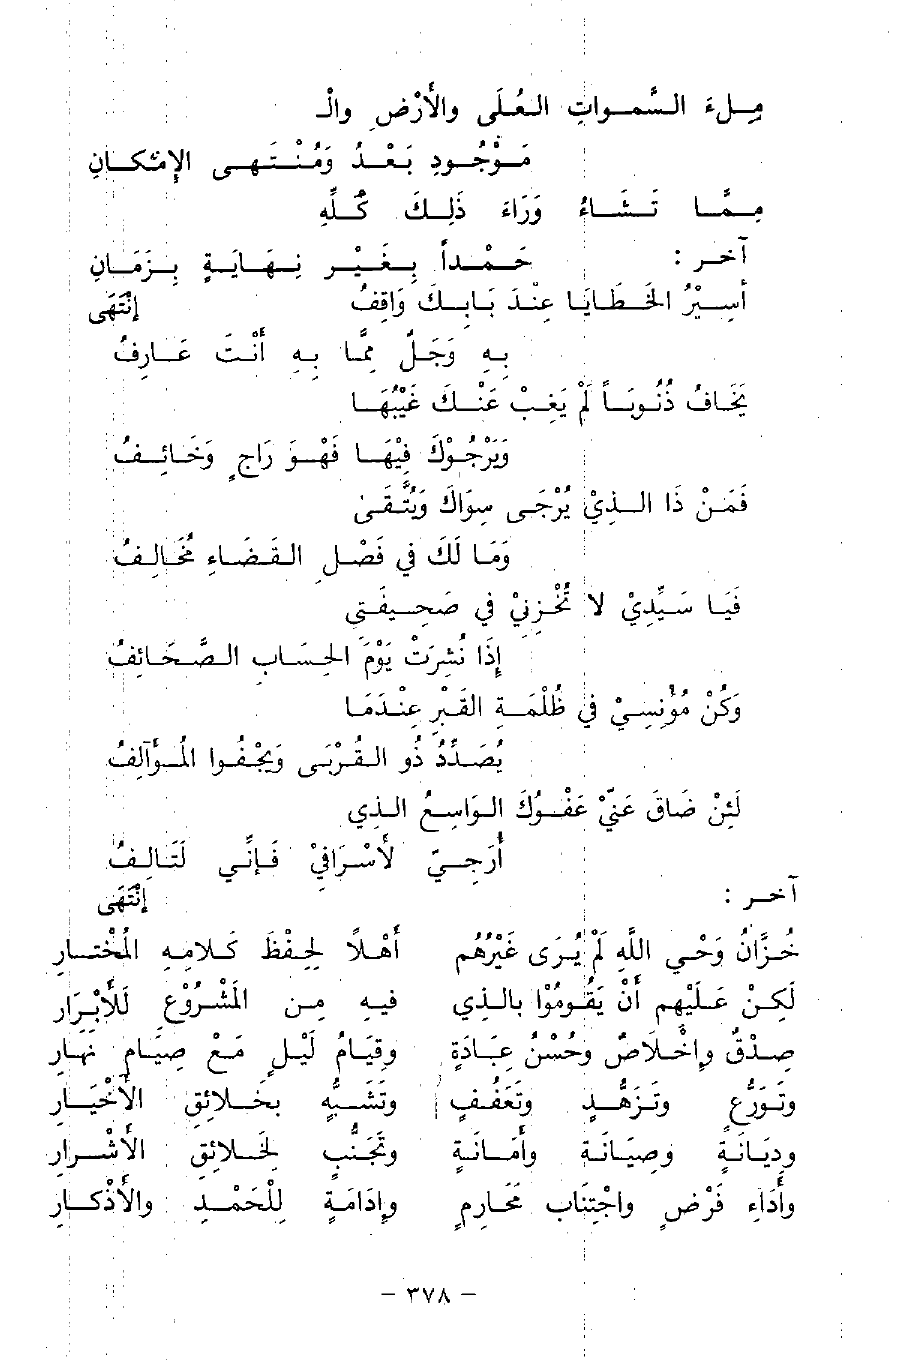 مِلءَ السَّمواتِ العُلَى والأَرْضِ والْـ
مَوْجُودِ بَعْدُ وَمُنْتَهى الإِمْكَانِ
مِمَّا تَشَاءُ وَرَاءَ ذَلِكَ كُلِّهِ
حَمْداً بِغَيْرِ نِهَايَةٍ بِزَمَانِ
آخر :
أَسِيْرُ الخَطَايَا عِنْدَ بَابِكَ وَاقِفُ
إِنْتَهَى
بِهِ وَجَلٌ مِمَّا بِهِ أَنْتَ عَارِفُ
يَخَافُ ذُنُوبَاً لَمْ يَغِبْ عَنْكَ غَيْبُهَا
وَيَرْجُوْكَ فِيْهَا فَهْوَ رَاجٍ وَخَائِفُ
فَمَنْ ذَا الذِيْ يُرْجَى سِوَاكَ وَيُتَّقَى
وَمَا لَكَ فِي فَصْلِ القَضَاءِ مُخَالِفُ
فَيَا سَيِّدِيْ لا تُخْزِنِيْ فِي صَحِيفَتِي
إِذَا نُشِرَتْ يَوْمَ الحِسَابِ الصَّحَائِفُ
وَكُنْ مُؤْنِسِيْ فِي ظُلْمَةِ القَبْرِ عِنْدَمَا
يُصَدِّدُ ذُو القُرْبَى وَيَجْفُوا المُوَآلِفُ
لَئِنْ ضَاقَ عَنِّيْ عَفْوُكَ الوَاسِعُ الذِي
أُرَجِّيْ لأَسْرَافِيْ فَإِنِّي لَتَالِفُ
آخر :
إِنْتَهَى
خُزَّانُ وَحْيِ اللَّهِ لَمْ يُرَى غَيْرُهُم أَهْلاً لِحِفْظِ كَلامِهِ المُخْتَارِ
لَكِنْ عَلَيْهِم أَنْ يَقُومُوا بِالذِي فِيهِ مِنَ المَشْرُوْعِ لِلأَبْرَارِ
صِدْقٍ وإِخْلاصٍ وحُسْنِ عِبَادَةٍ وقِيَامِ لَيْلٍ مَعْ صِيَامِ نَهَارِ
وتَوَرُّعٍ وتَزَهُّدٍ وتَعَفُّفٍ وتَشَبُّهٍ بِخَلائِقِ الأَخْيَارِ
ودِيَانَةٍ وصِيَانَةٍ وأَمَانَةٍ وتَجَنُّبٍ لِخَلائِقِ الأَشْرارِ
وأَدَاءِ فَرْضٍ واجْتِنَابِ مَحَارِمٍ وإِدَامَةٍ لِلْحَمْدِ والأَذْكَارِ
– ٣٧٨ –